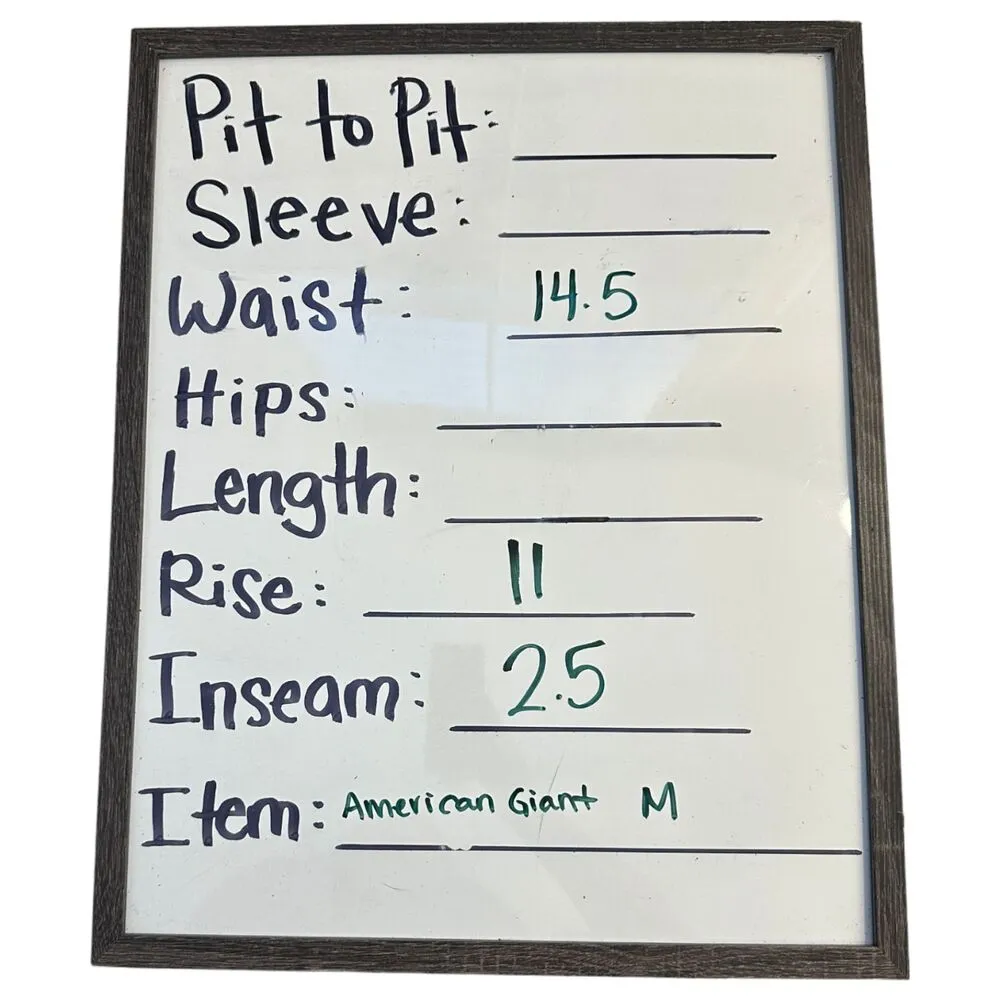 Pit to Pit:
Sleeve:
Waist: 14.5
Hips:
Length:
Rise: 11
Inseam: 2.5
Item: American Giant M